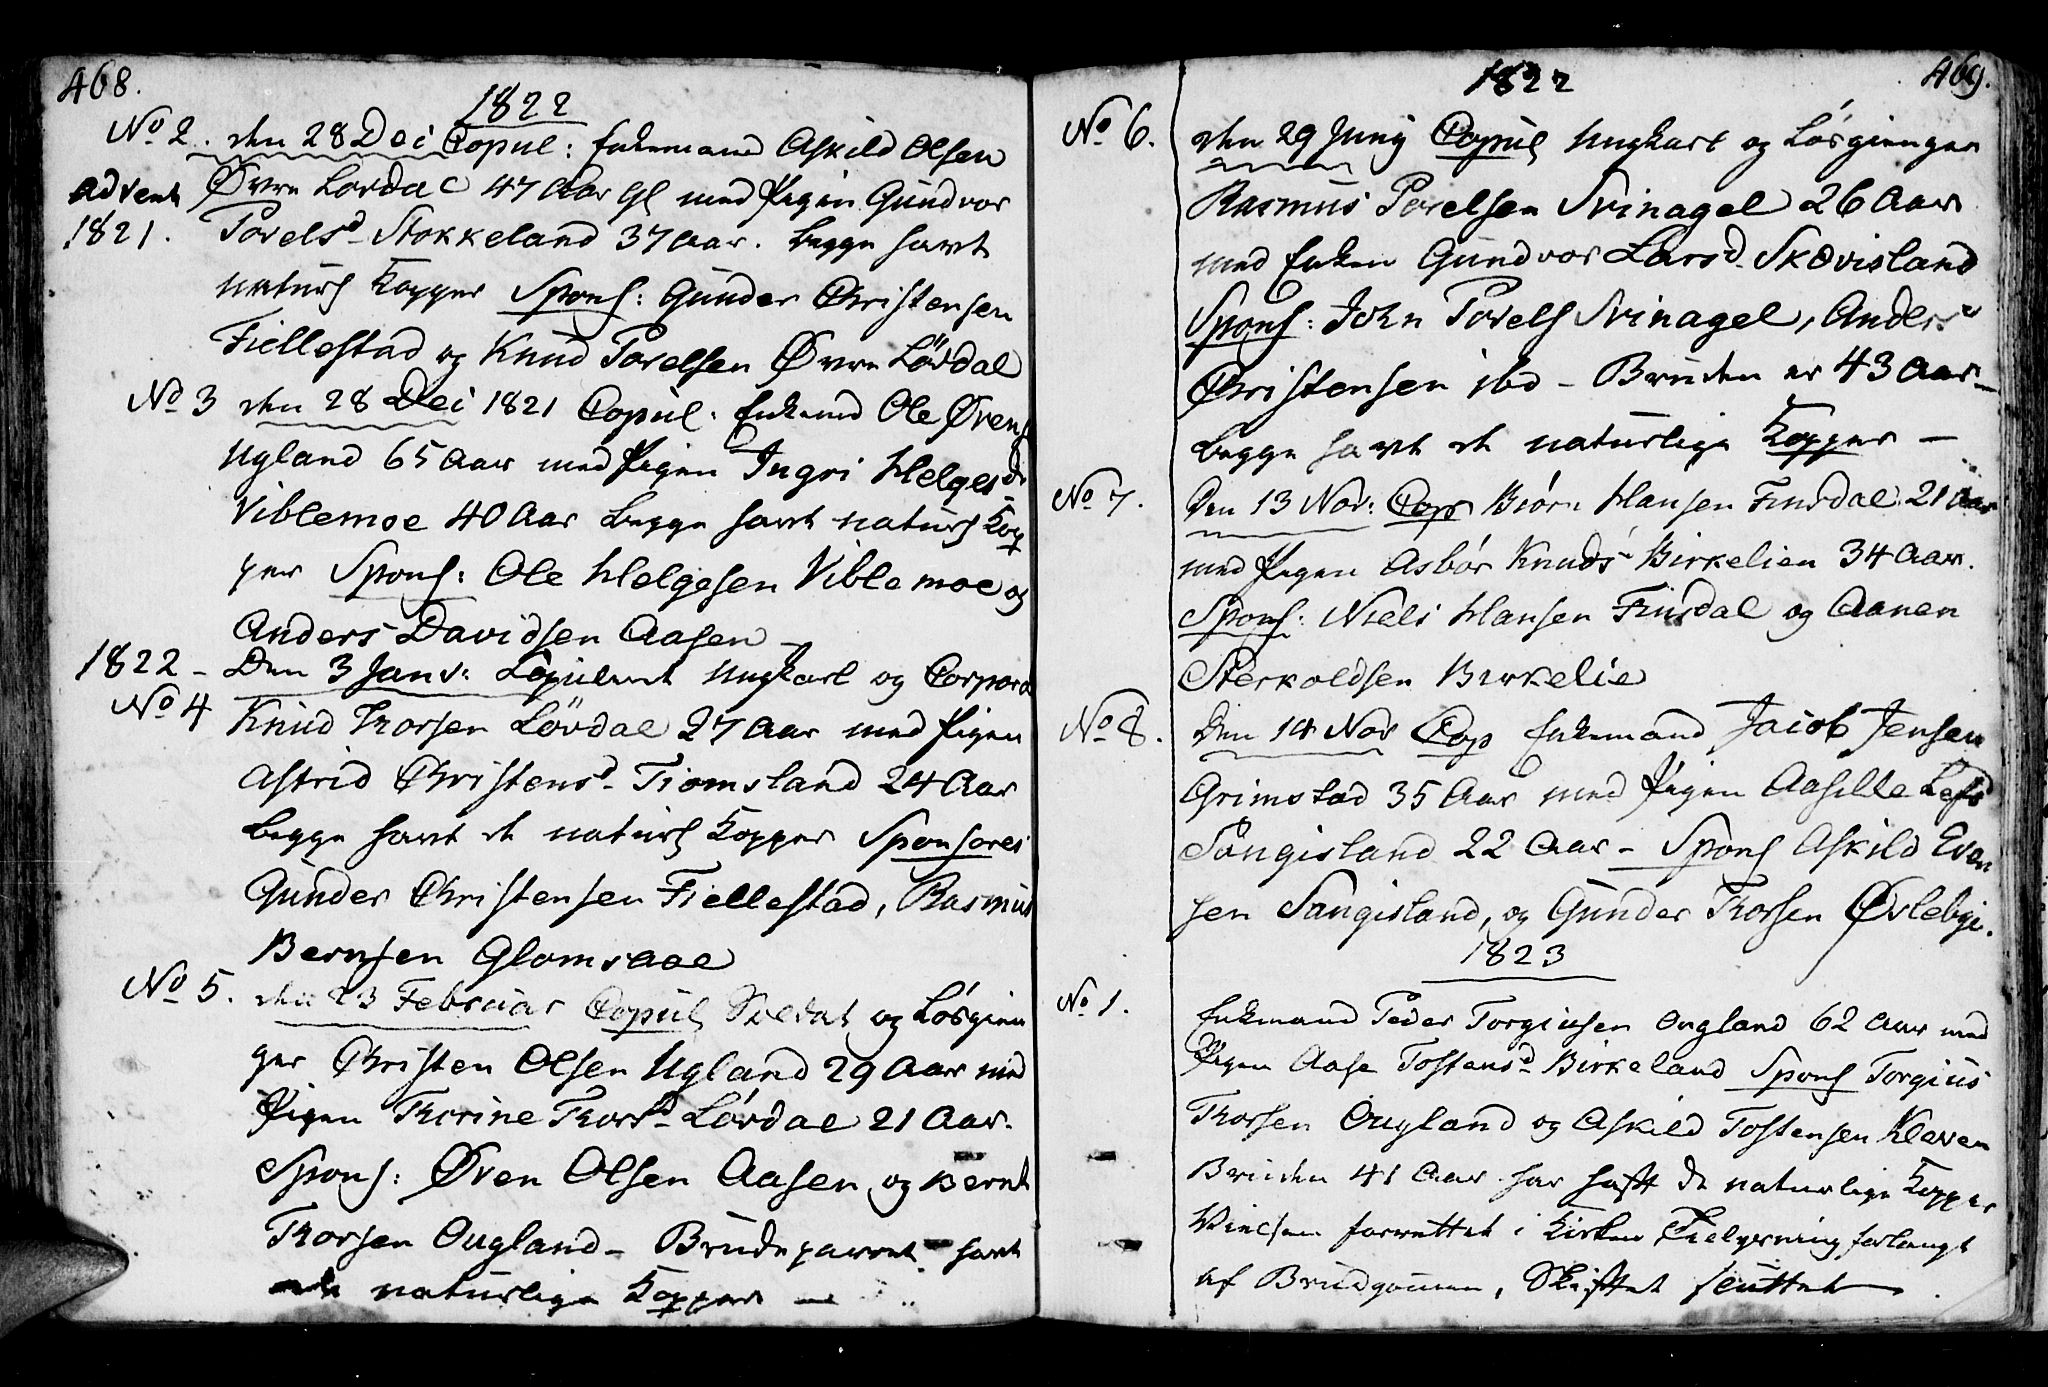 468.
1822
No 2. den 28 Dec Copul: Enkemand Askild Olsen
Advent Øvre Lovdal 47 Aar gl med Pigen Gundvor
1821. Povelsd- Stokkeland 37 Aar. begge havt
naturl Kopper Spons: Gunder Christensen
Fiellestad og Knud Povelsen Øvre Lövdal
No 3 den 28 Dec 1821 Copul: Enkemd Ole Øvens
Ugland 65 Aar med Pigen Ingri Helgesd
Viblemoe 40 Aar begge havt naturl Kop
per Spons: Ole Helgesen Viblemoe og
Anders Davidsen Aasen -
1822 - Den 3 Janv: Copuleret Ungkarl og Corporal
No 4 Knud Thorsen Lövdal 27 Aar med Pigen
Astrid Christensd- Tiomsland 24 Aar
begge havt de naturl Kopper Sponsores
Gunder Christensen Fiellestad, Rasmus
Berntsen Glomsaae
No 5. den 23 Februar Copul Soldat og Lösgien
ger Christen Olsen Ugland 29 Aar med
Pigen Thorine Thorsd- Lövdal 21 Aar.
Spons: Øven Olsen Aasen og Bernt
Thorsen Ougland - Brudeparret havt
naturlige Kopper -
469.
1822
No 6. den 29 Junij Copul Ungkarl og Lösgienger
Rasmus Povelsen Svinagel 26 Aar
med Enken Gundvor Larsd- Skövisland
Spons: John Povels Svinagel, Anders
Christensen ibd - Bruden er 43 Aar -
begge havt de naturlige Kopper -
No 7. Den 13 Nov: Cop Biörn Hansen Finsdal 21 Aar
med Pigen Asbör Knuds Birkelien 34 Aar.
Spons: Niels Hansen Finsdal og Aanen
Sterkoldsen Birkelie
No 8. Den 14 Nov Cop Enkemand Jacob Jensen
Grimstad 35 Aar med Pigen Aasille
Sangisland 22 Aar - Spons Askild Even
sen Sangisland, og Gunder Thorsen Øvlebye.
1823
No 1. Enkmand Peder Torgiusen Ougland 62 Aar med
Pigen Aase Tostensd Birkeland Spons Torgius
Thorsen Ougland og Askild Tostensen Kleven
Bruden 41 Aar har haft de naturlige Kopper
Vielsen forrettet i Kirken Tielysning forlangt
af Brudgommen, Skiftet sluttet